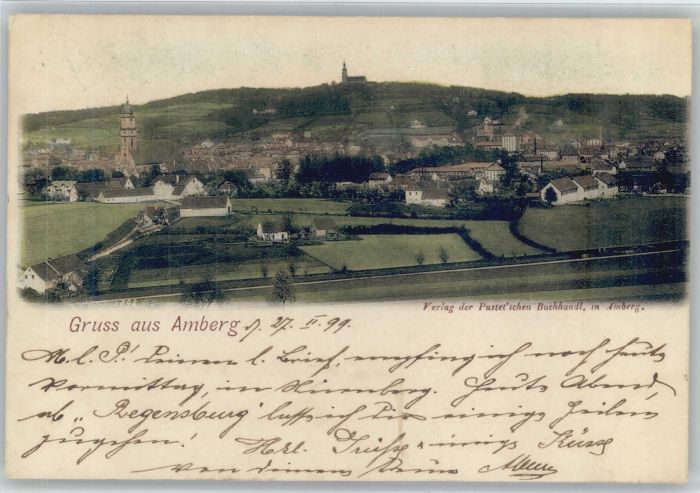 Verlag der Pustet'schen Buchhandl. in Amberg.
Gruss aus Amberg 27. II. 99.
M. l. P.! Deinen l. Brief, empfing ich noch heute
Vormittag, in Nürnberg. Heute Abend
ab „Regensburg“ lass ich Dir einige Zeilen
zugehen! Hzl. Grüsse & innige Küsse
von deinem